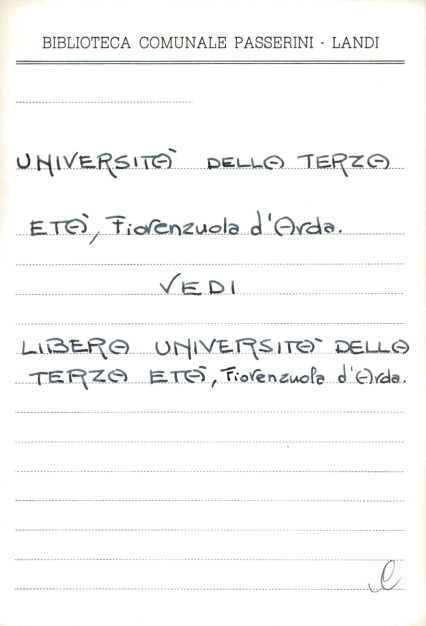 BIBLIOTECA COMUNALE PASSERINI - LANDI
UNIVERSITÀ DELLA TERZA
ETÀ, Fiorenzuola d'Arda.
VEDI
LIBERA UNIVERSITÀ DELLA
TERZA ETÀ, Fiorenzuola d'Arda.